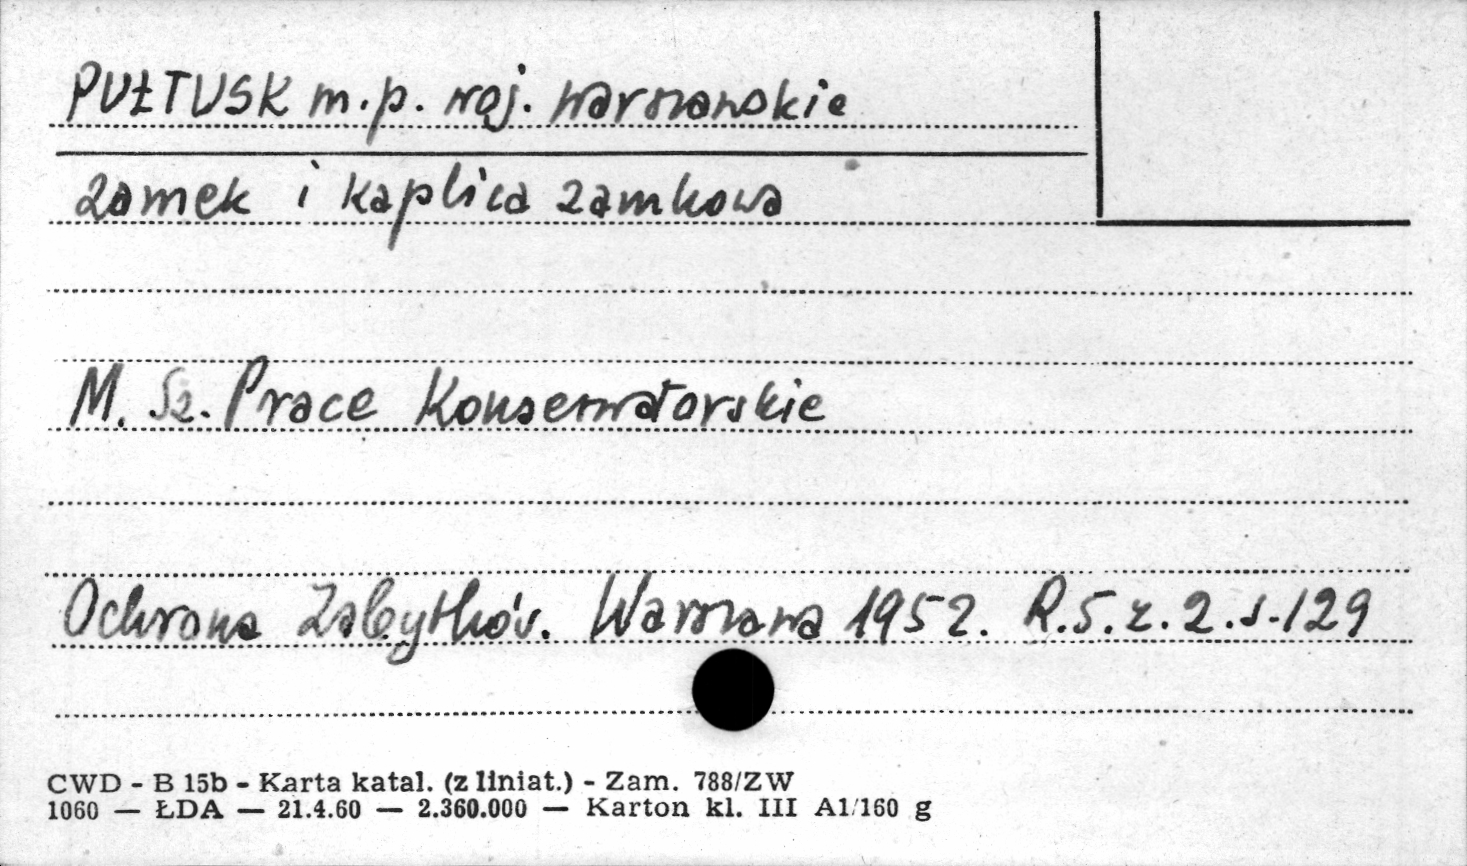 PUŁTUSK m.p. woj. warszawskie
zamek i kaplica zamkowa
M. Sz. Prace Konserwatorskie
Ochrona Zabytków. Warszawa 1952. R.5. z. 2. s. 129
CWD - B 15b - Karta katal. (z liniat.) - Zam. 788/ZW
1060 — ŁDA — 21.4.60 — 2.360.000 — Karton kl. III A1/160 g